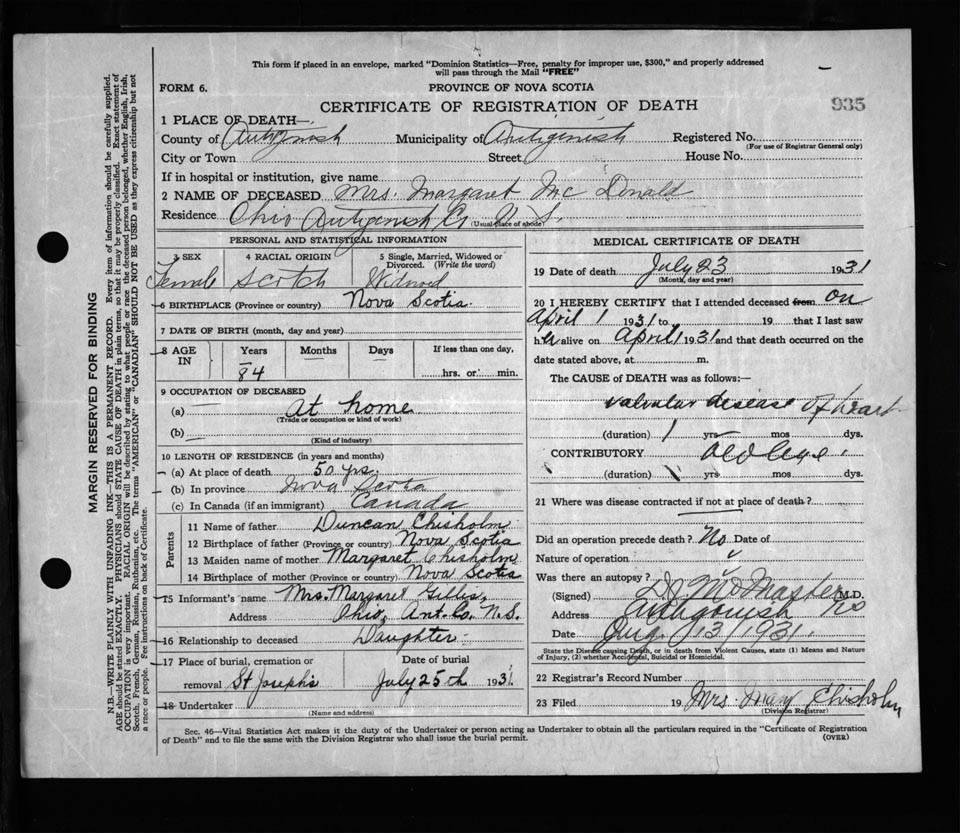 This form if placed in an envelope, marked "Dominion Statistics—Free, penalty for improper use, $300," and properly addressed
will pass through the Mail "FREE"
FORM 6.
PROVINCE OF NOVA SCOTIA
CERTIFICATE OF REGISTRATION OF DEATH
935
1 PLACE OF DEATH—
County of Antigonish Municipality of Antigonish Registered No.
(For use of Registrar General only)
City or Town Street House No.
If in hospital or institution, give name
2 NAME OF DECEASED Mrs. Margaret Mc Donald
Residence Ohio Antigonish Co. N. S.
(Usual place of abode)
PERSONAL AND STATISTICAL INFORMATION
3 SEX 4 RACIAL ORIGIN 5 Single, Married, Widowed or Divorced. (Write the word)
Female Scotch Widowed
6 BIRTHPLACE (Province or country) Nova Scotia
7 DATE OF BIRTH (month, day and year)
8 AGE IN Years Months Days If less than one day,
84 hrs. or min.
9 OCCUPATION OF DECEASED
(a) At home
(Trade or occupation or kind of work)
(b)
(Kind of Industry)
10 LENGTH OF RESIDENCE (in years and months)
(a) At place of death 50 yrs.
(b) In province Nova Scotia
(c) In Canada (if an immigrant) Canada
Parents
11 Name of father Duncan Chisholm
12 Birthplace of father (Province or country) Nova Scotia
13 Maiden name of mother Margaret Chisholm
14 Birthplace of mother (Province or country) Nova Scotia
15 Informant's name Mrs. Margaret Gillis,
Address Ohio, Ant. Co. N.S.
16 Relationship to deceased Daughter
17 Place of burial, cremation or removal St Joseph's
Date of burial July 25th 1931
18 Undertaker
(Name and address)
MEDICAL CERTIFICATE OF DEATH
19 Date of death July 23 1931
(Month, day and year)
20 I HEREBY CERTIFY that I attended deceased from on
April 1 1931 to 19 that I last saw
her alive on April 1 1931 and that death occurred on the
date stated above, at m.
The CAUSE of DEATH was as follows:—
valvular disease of heart
(duration) 1 yrs mos dys.
CONTRIBUTORY old age.
(duration) yrs mos dys.
21 Where was disease contracted if not at place of death?
Did an operation precede death? No Date of
Nature of operation
Was there an autopsy?
(Signed) McMaster M.D.
Address Antigonish
Date 13/1931.
State the Disease causing Death, or in death from Violent Causes, state (1) Means and Nature
of Injury, (2) whether Accidental, Suicidal or Homicidal.
22 Registrar's Record Number
23 Filed 19 Mrs. Mary Chisholm
(Division Registrar)
Sec. 46—Vital Statistics Act makes it the duty of the Undertaker or person acting as Undertaker to obtain all the particulars required in the "Certificate of Registration
of Death" and to file the same with the Division Registrar who shall issue the burial permit.
(OVER)
MARGIN RESERVED FOR BINDING
N.B.—WRITE PLAINLY WITH UNFADING INK—THIS IS A PERMANENT RECORD. Every item of information should be carefully supplied.
AGE should be stated EXACTLY. PHYSICIANS should STATE CAUSE OF DEATH in plain terms, so that it may be properly classified. Exact statement of
OCCUPATION is very important. RACIAL ORIGIN will be described by stating to what people or race the deceased person belonged, whether English, Irish,
Scotch, French, German, Russian, Ruthenian, etc. The terms "AMERICAN" or "CANADIAN" SHOULD NOT BE USED as they express citizenship but not
a race or people. Fee instructions on back of Certificate.